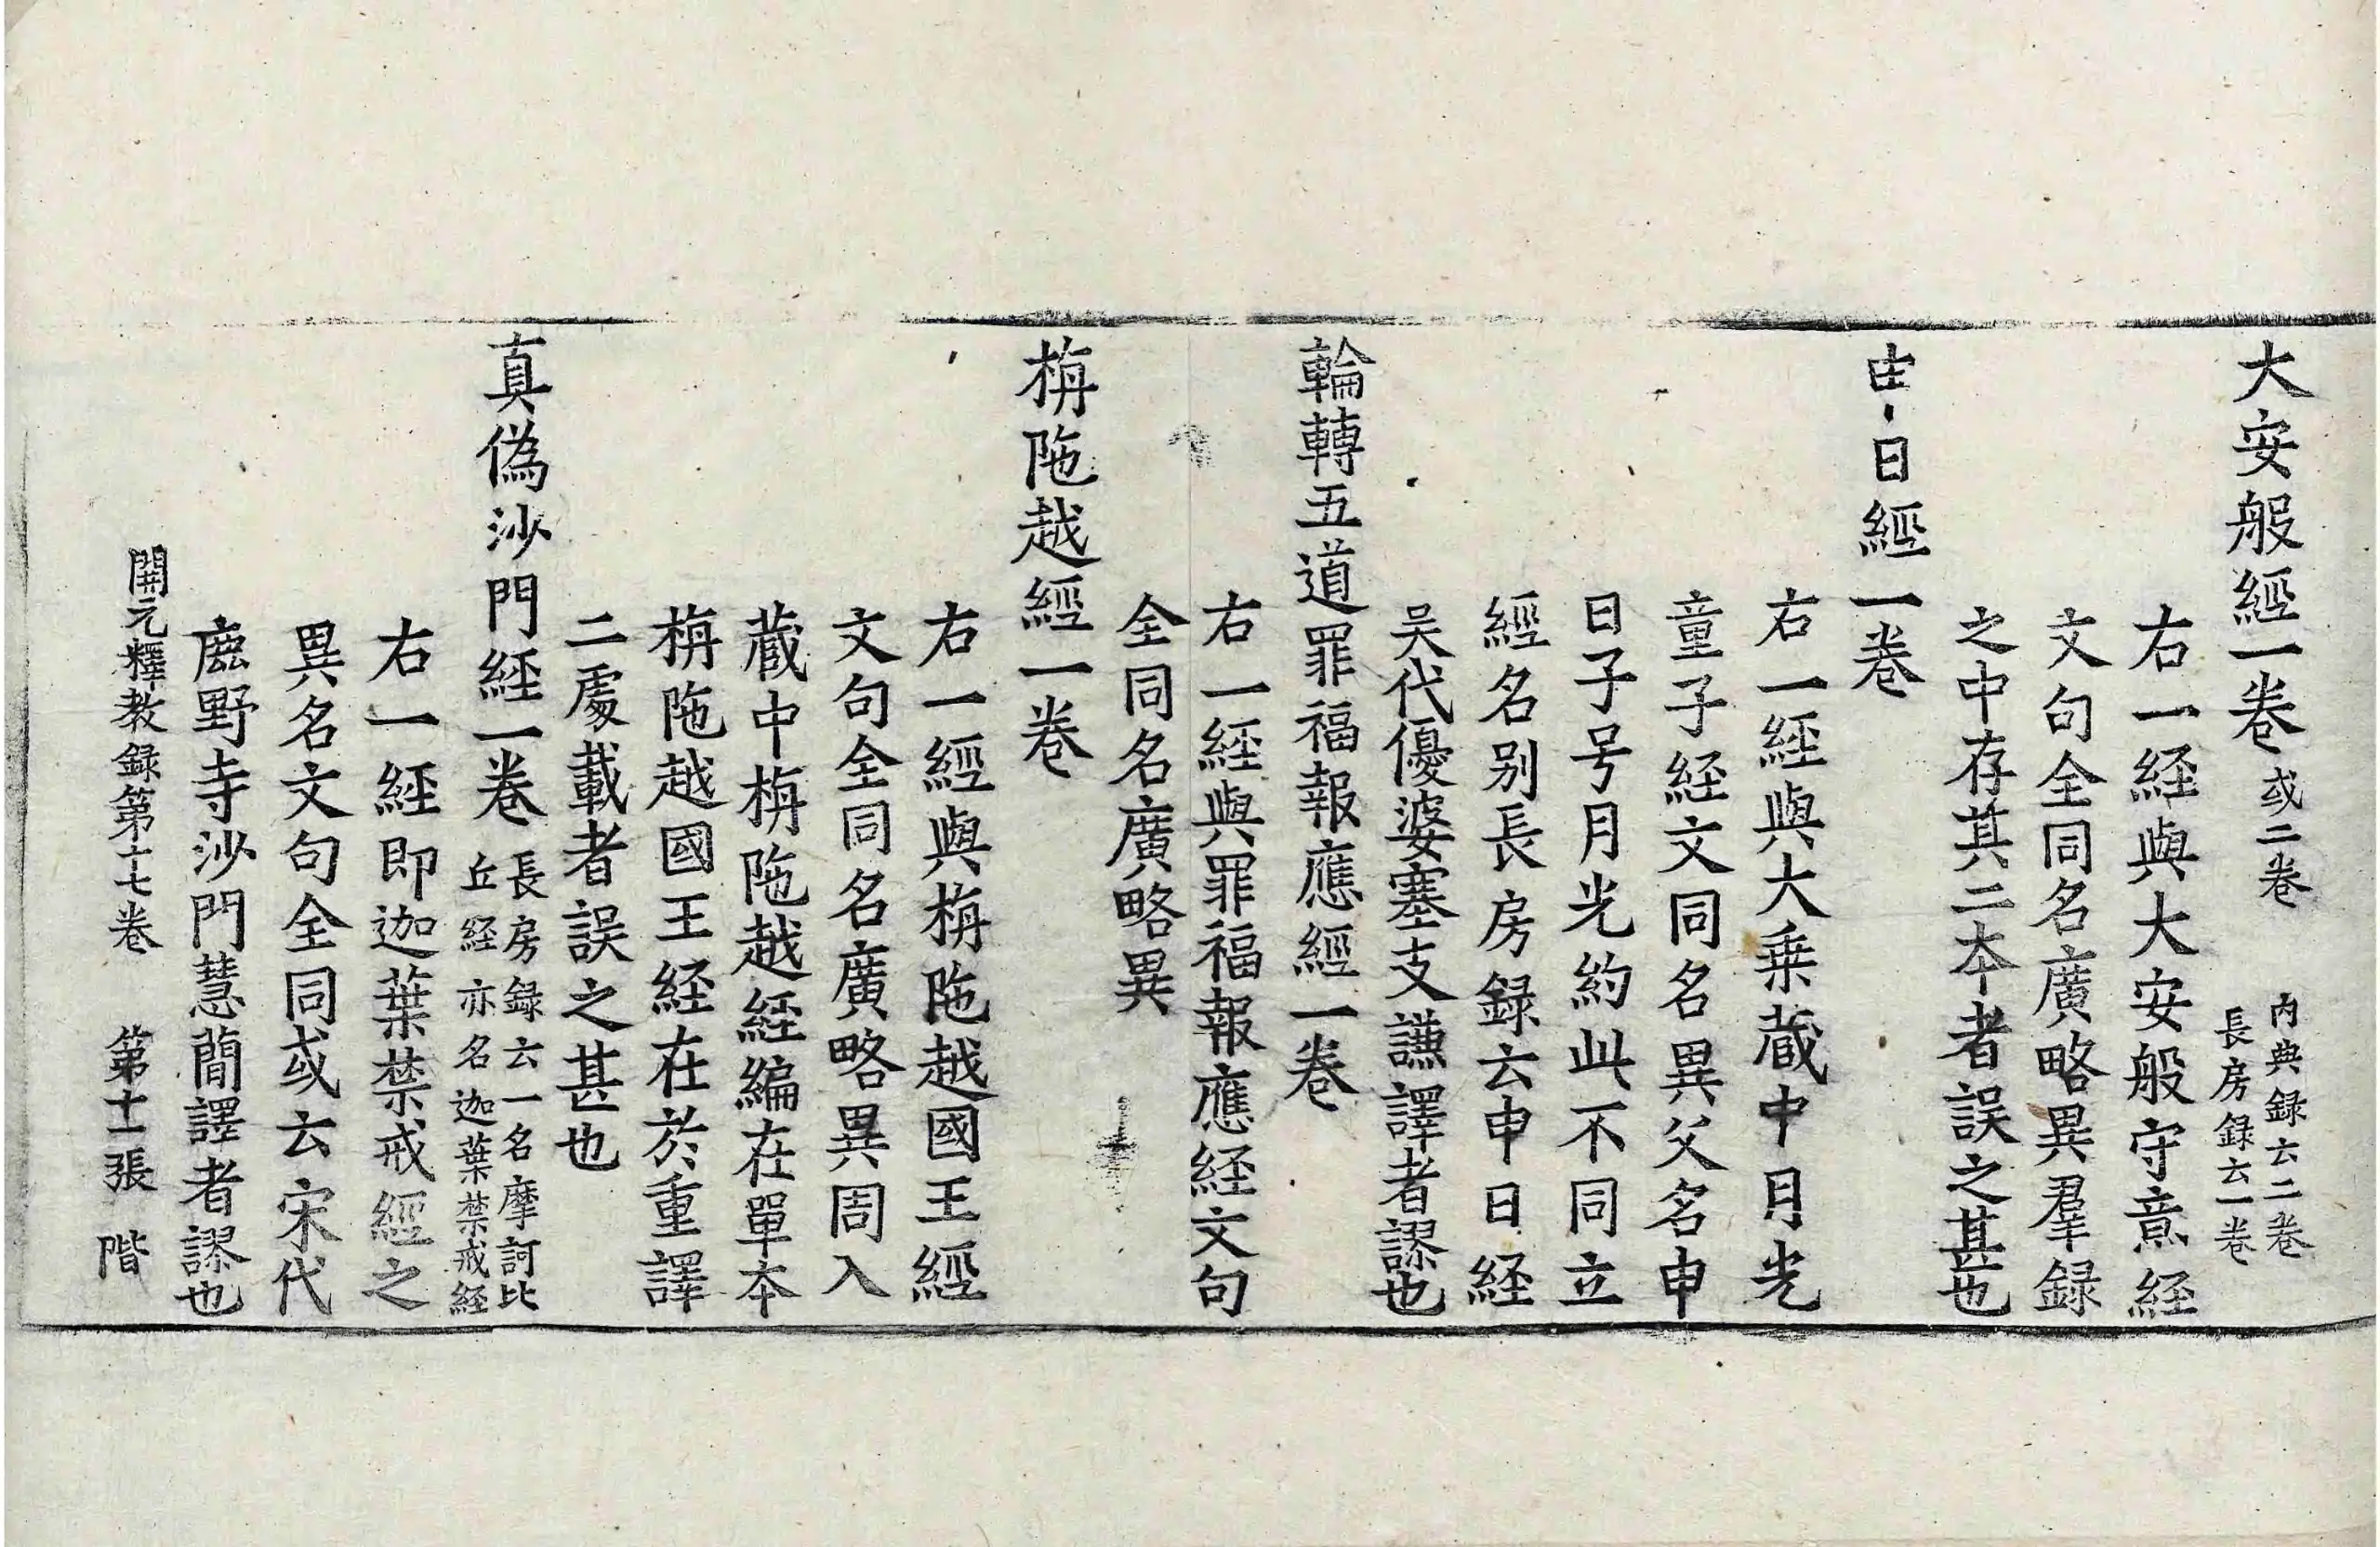 大安般經一卷 或二卷 內典録云二卷
長房録云一卷
右一経與大安般守意経
文句全同名廣略異羣録
之中存其二本者誤之甚也
申日經一卷
右一経與大乗蔵中月光
童子経文同名異父名申
日子号月光約此不同立
經名别長房録云申日経
吴代優婆塞支謙譯者謬也
輪轉五道罪福報應經一卷
右一経與罪福報應経文句
全同名廣略異
栴陁越經一卷
右一經與栴陁越國王經
文句全同名廣略異周入
蔵中栴陁越経編在單本
栴陁越國王経在於重譯
二處載者誤之甚也
真偽沙門経一卷 長房録云一名摩訶比
丘経亦名迦葉禁戒経
右一經即迦葉禁戒經之
異名文句全同或云宋代
鹿野寺沙門慧簡譯者謬也
開元釋教録第十七卷 第十一張 階